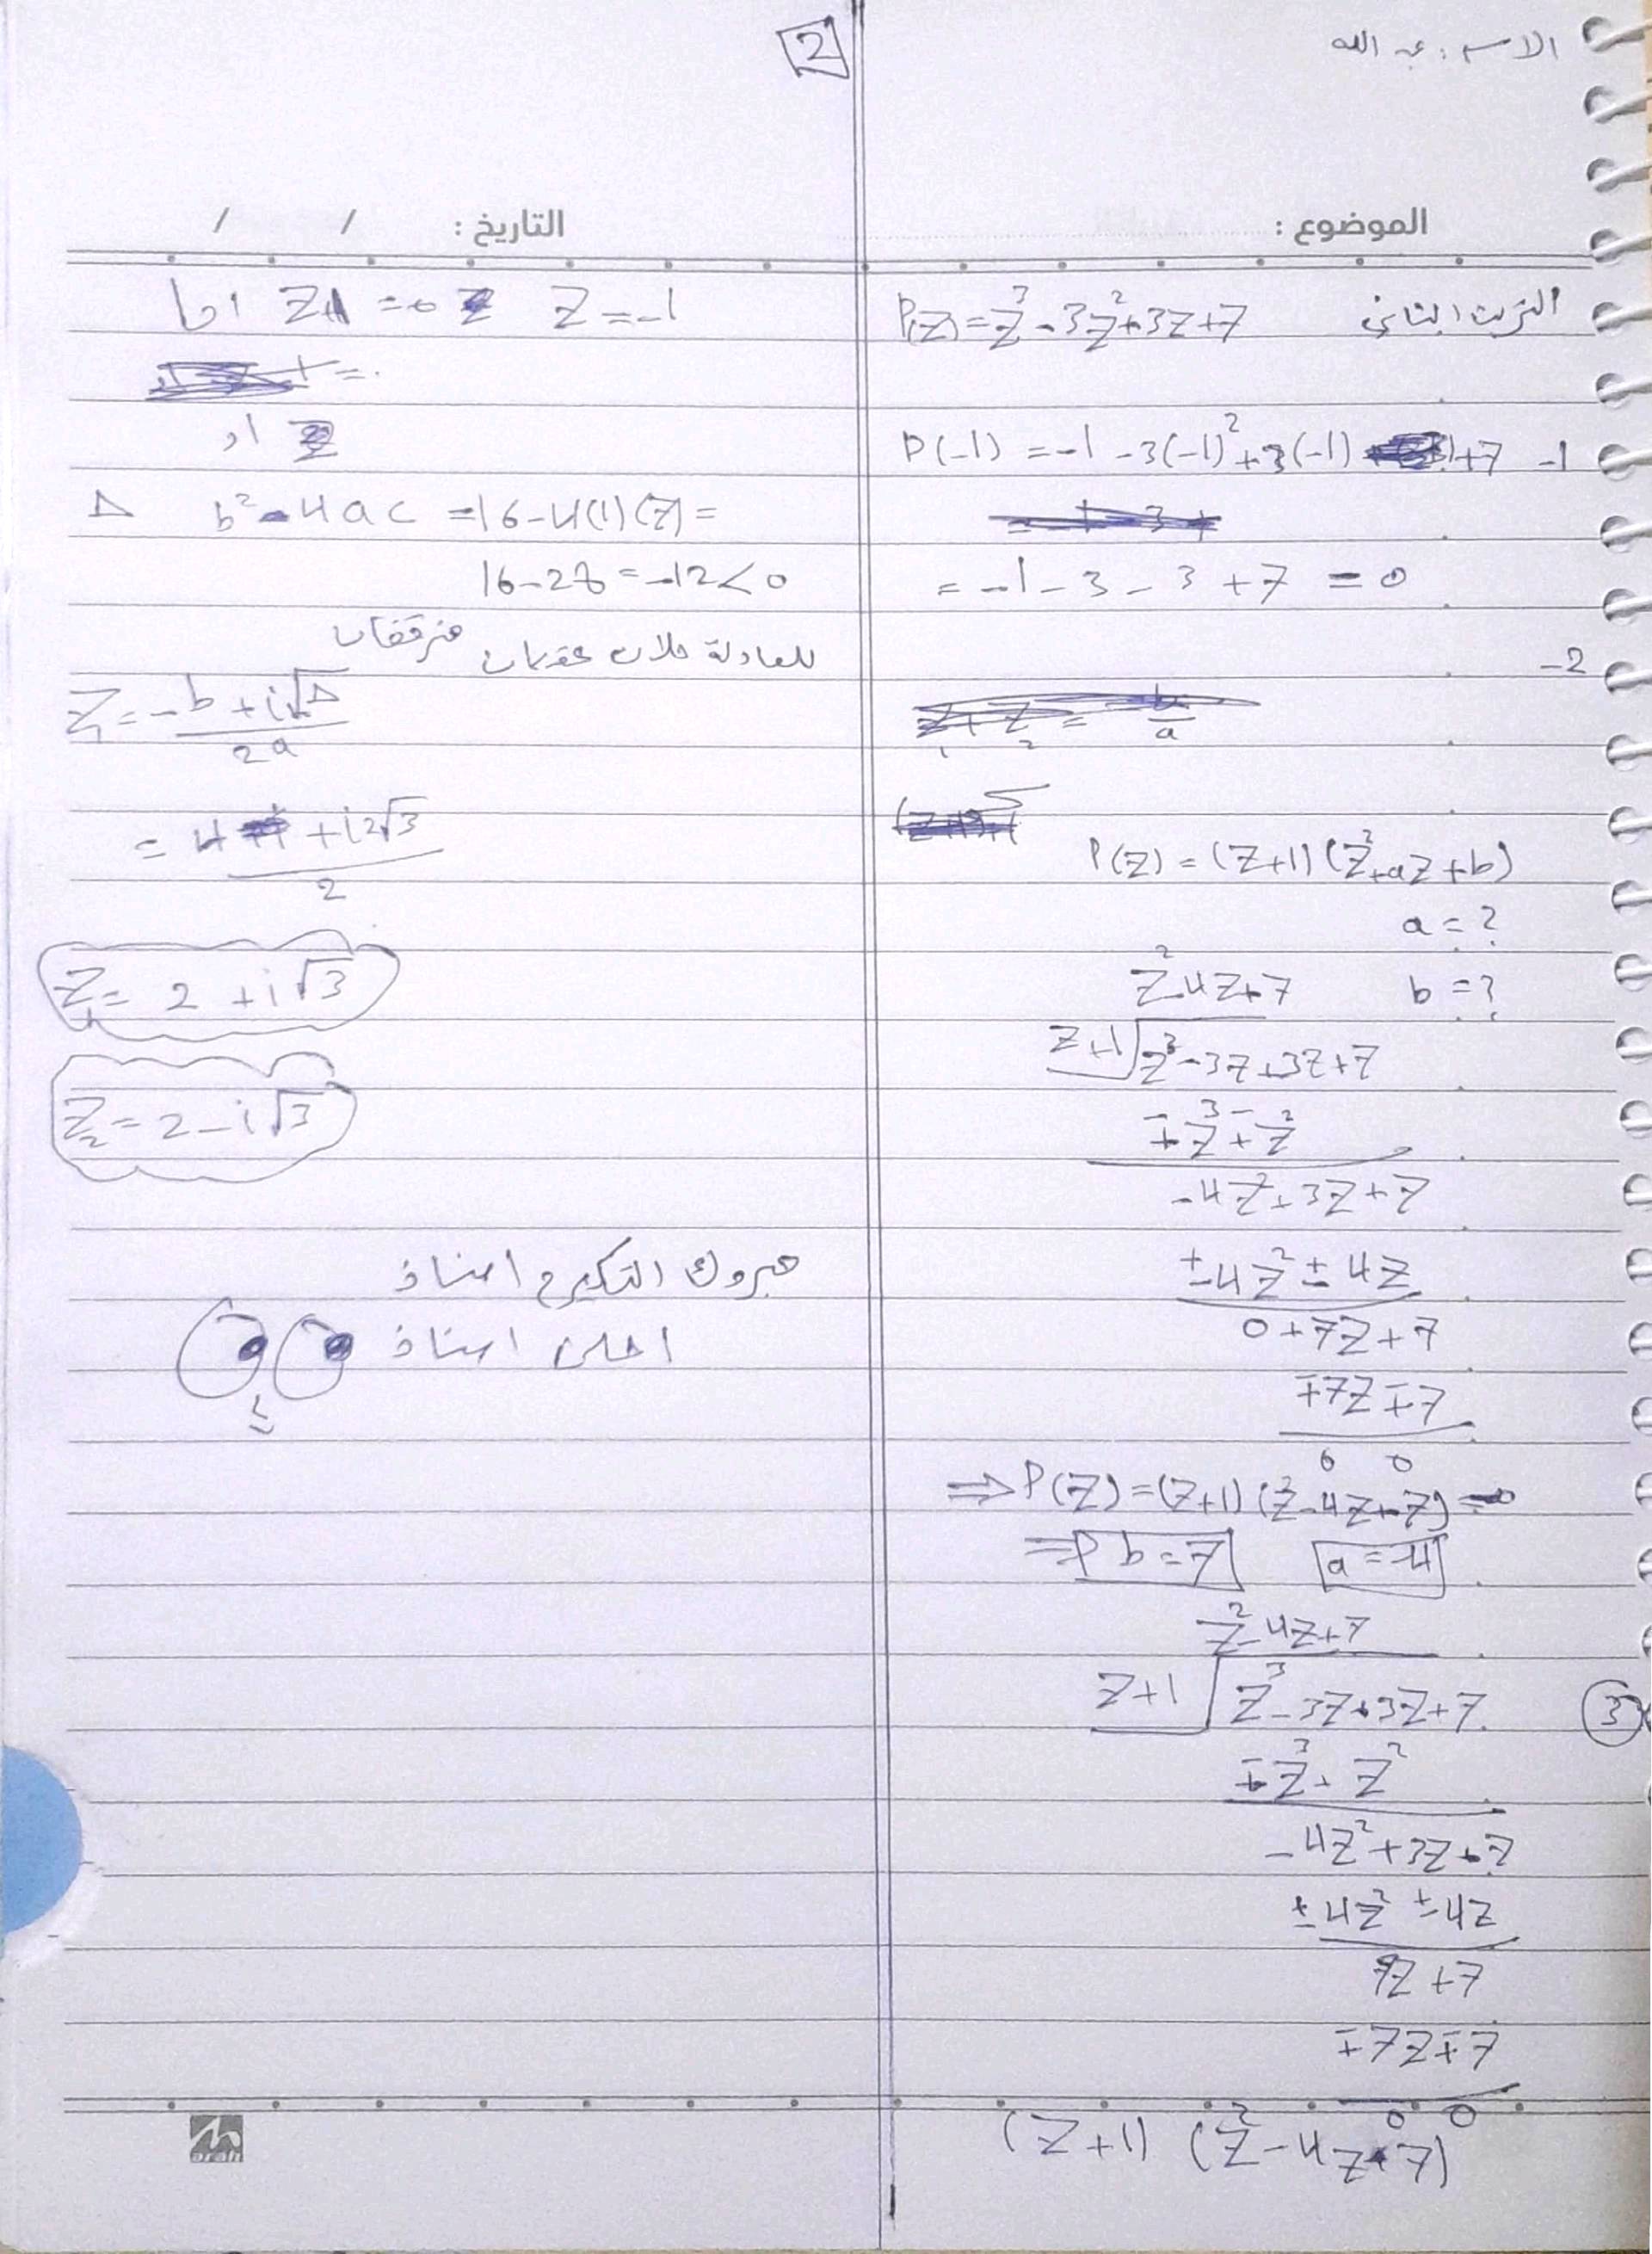 الاسم : عبد الله
2
الموضوع :
التاريخ : / /
التمرين الثاني P(z) = z³ - 3z² + 3z + 7
1- P(-1) = -1 - 3(-1)² + 3(-1) +7
= -1 - 3 - 3 + 7 = 0
2-
P(z) = (z+1)(z²+az+b)
a = ?
b = ?
z² - 4z + 7
z+1 z³ - 3z + 3z + 7
∓z³ ∓ z²
-4z² + 3z + 7
±4z² ± 4z
0 + 7z + 7
∓7z ∓ 7
0 0
⇒ P(z) = (z+1)(z² - 4z + 7) = 0
⇒ b = 7 a = -4
z² - 4z + 7
3 z+1 z³ - 3z + 3z + 7
∓z³ + z²
-4z² + 3z + 7
±4z² ± 4z
7z + 7
∓7z ∓ 7
0 0
(z+1) (z² - 4z + 7)
اما z+1 = 0 z = -1
= 0
او
Δ b² - 4ac = 16 - 4(1)(7) =
16 - 28 = -12 < 0
للمعادلة حلان عقديان مترافقان
z₁ = -b + i√Δ / 2a
= 4 + i2√3 / 2
z₁ = 2 + i√3
z₂ = 2 - i√3
مبروك التكريم استاذ
احلى استاذ